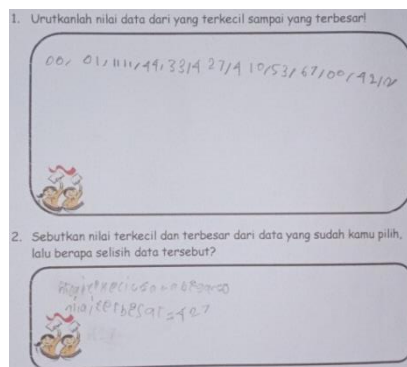 1. Urutkanlah nilai data dari yang terkecil sampai yang terbesar!
00, 01, 111, 44, 33/4 27/4 10/53/ 67/00/ 42/
2. Sebutkan nilai terkecil dan terbesar dari data yang sudah kamu pilih,
lalu berapa selisih data tersebut?
nilai terbesar = 427